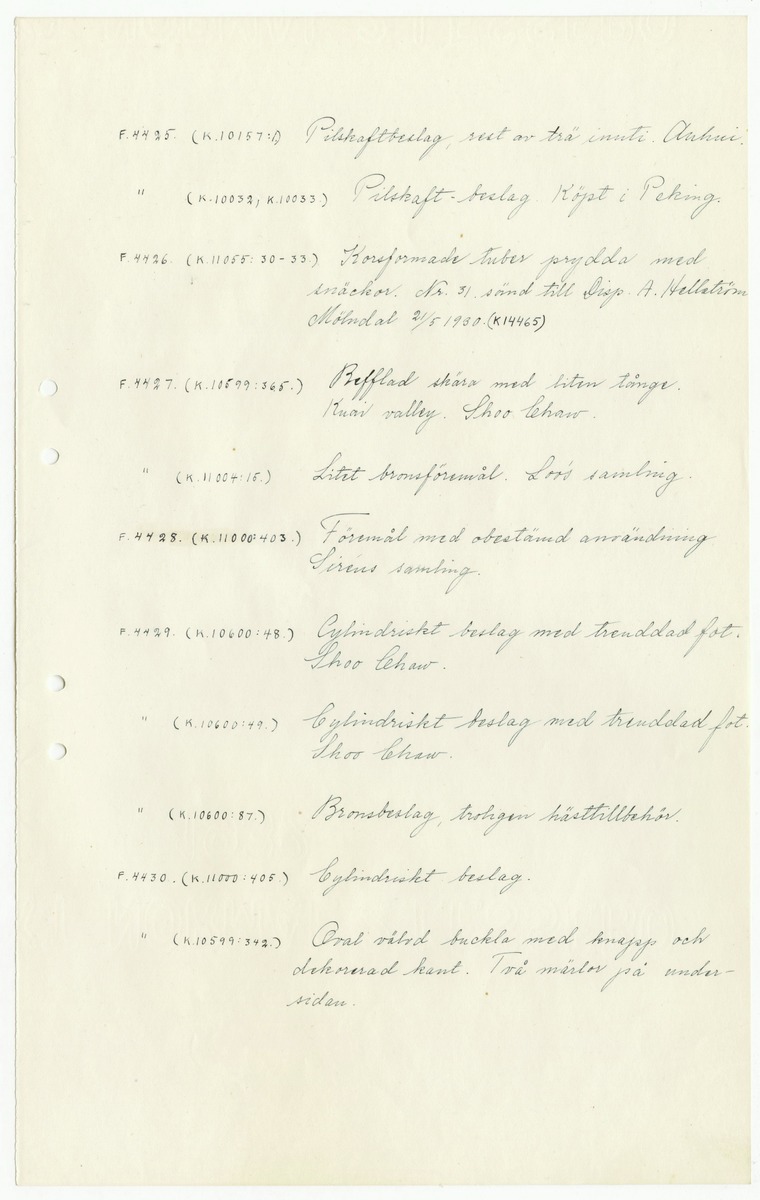 F.4425. (K.10157:1) Pilskaftbeslag, rest av trä innti. Anhui.
" (K.10032, K.10033.) Pilskaft-beslag. Köpt i Peking.
F.4426. (K.11055:30-33.) Korsformade tuber prydda med
snäckor. Nr. 31 sänd till Disp. A. Hellström
Mölndal 21/5 1930. (K14465)
F.4427. (K.10599:365.) Refflad skära med liten tånge.
Kuai valley. Shoo Chaw.
" (K.11004:15.) Litet bronsföremål. Loo's samling.
F.4428. (K.11000:403.) Föremål med obestämd användning
Siréns samling.
F.4429. (K.10600:48.) Cylindriskt beslag med trenddad fot.
Shoo Chaw.
" (K.10600:49.) Cylindriskt beslag med trenddad fot.
Shoo Chaw.
" (K.10600:87.) Bronsbeslag, troligen hästtillbehör.
F.4430. (K.11000:405.) Cylindriskt beslag.
" (K.10599:342.) Oval välvd buckla med knapp och
dekorerad kant. Två märlor på under-
sidan.